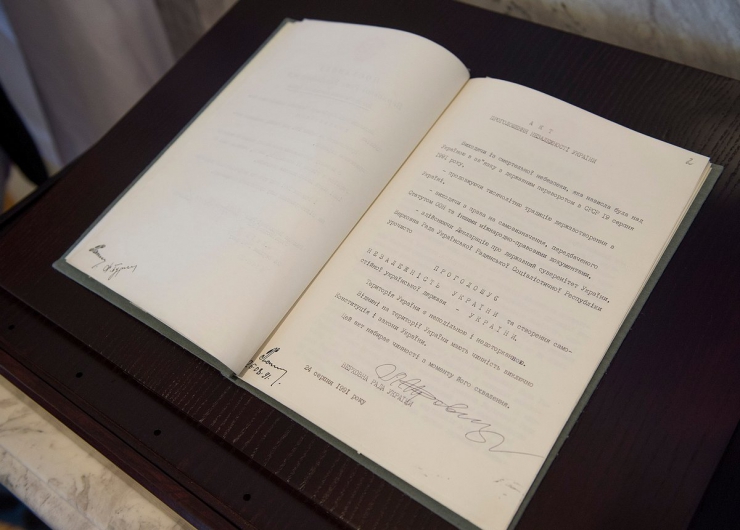 2
А К Т
ПРОГОЛОШЕННЯ НЕЗАЛЕЖНОСТІ УКРАЇНИ
Виходячи із смертельної небезпеки, яка нависла була над
Україною в зв'язку з державним переворотом в СРСР 19 серпня
1991 року,
- продовжуючи тисячолітню традицію державотворення в
Україні,
- виходячи з права на самовизначення, передбаченого
Статутом ООН та іншими міжнародно-правовими документами,
- здійснюючи Декларацію про державний суверенітет України,
Верховна Рада Української Радянської Соціалістичної Республіки
урочисто
П Р О Г О Л О Ш У Є
Н Е З А Л Е Ж Н І С Т Ь У К Р А Ї Н И та створення само-
стійної української держави - У К Р А Ї Н И.
Територія України є неподільною і недоторканною.
Віднині на території України мають чинність виключно
Конституція і закони України.
Цей акт набирає чинності з моменту його схвалення.
ВЕРХОВНА РАДА УКРАЇНИ
24 серпня 1991 року